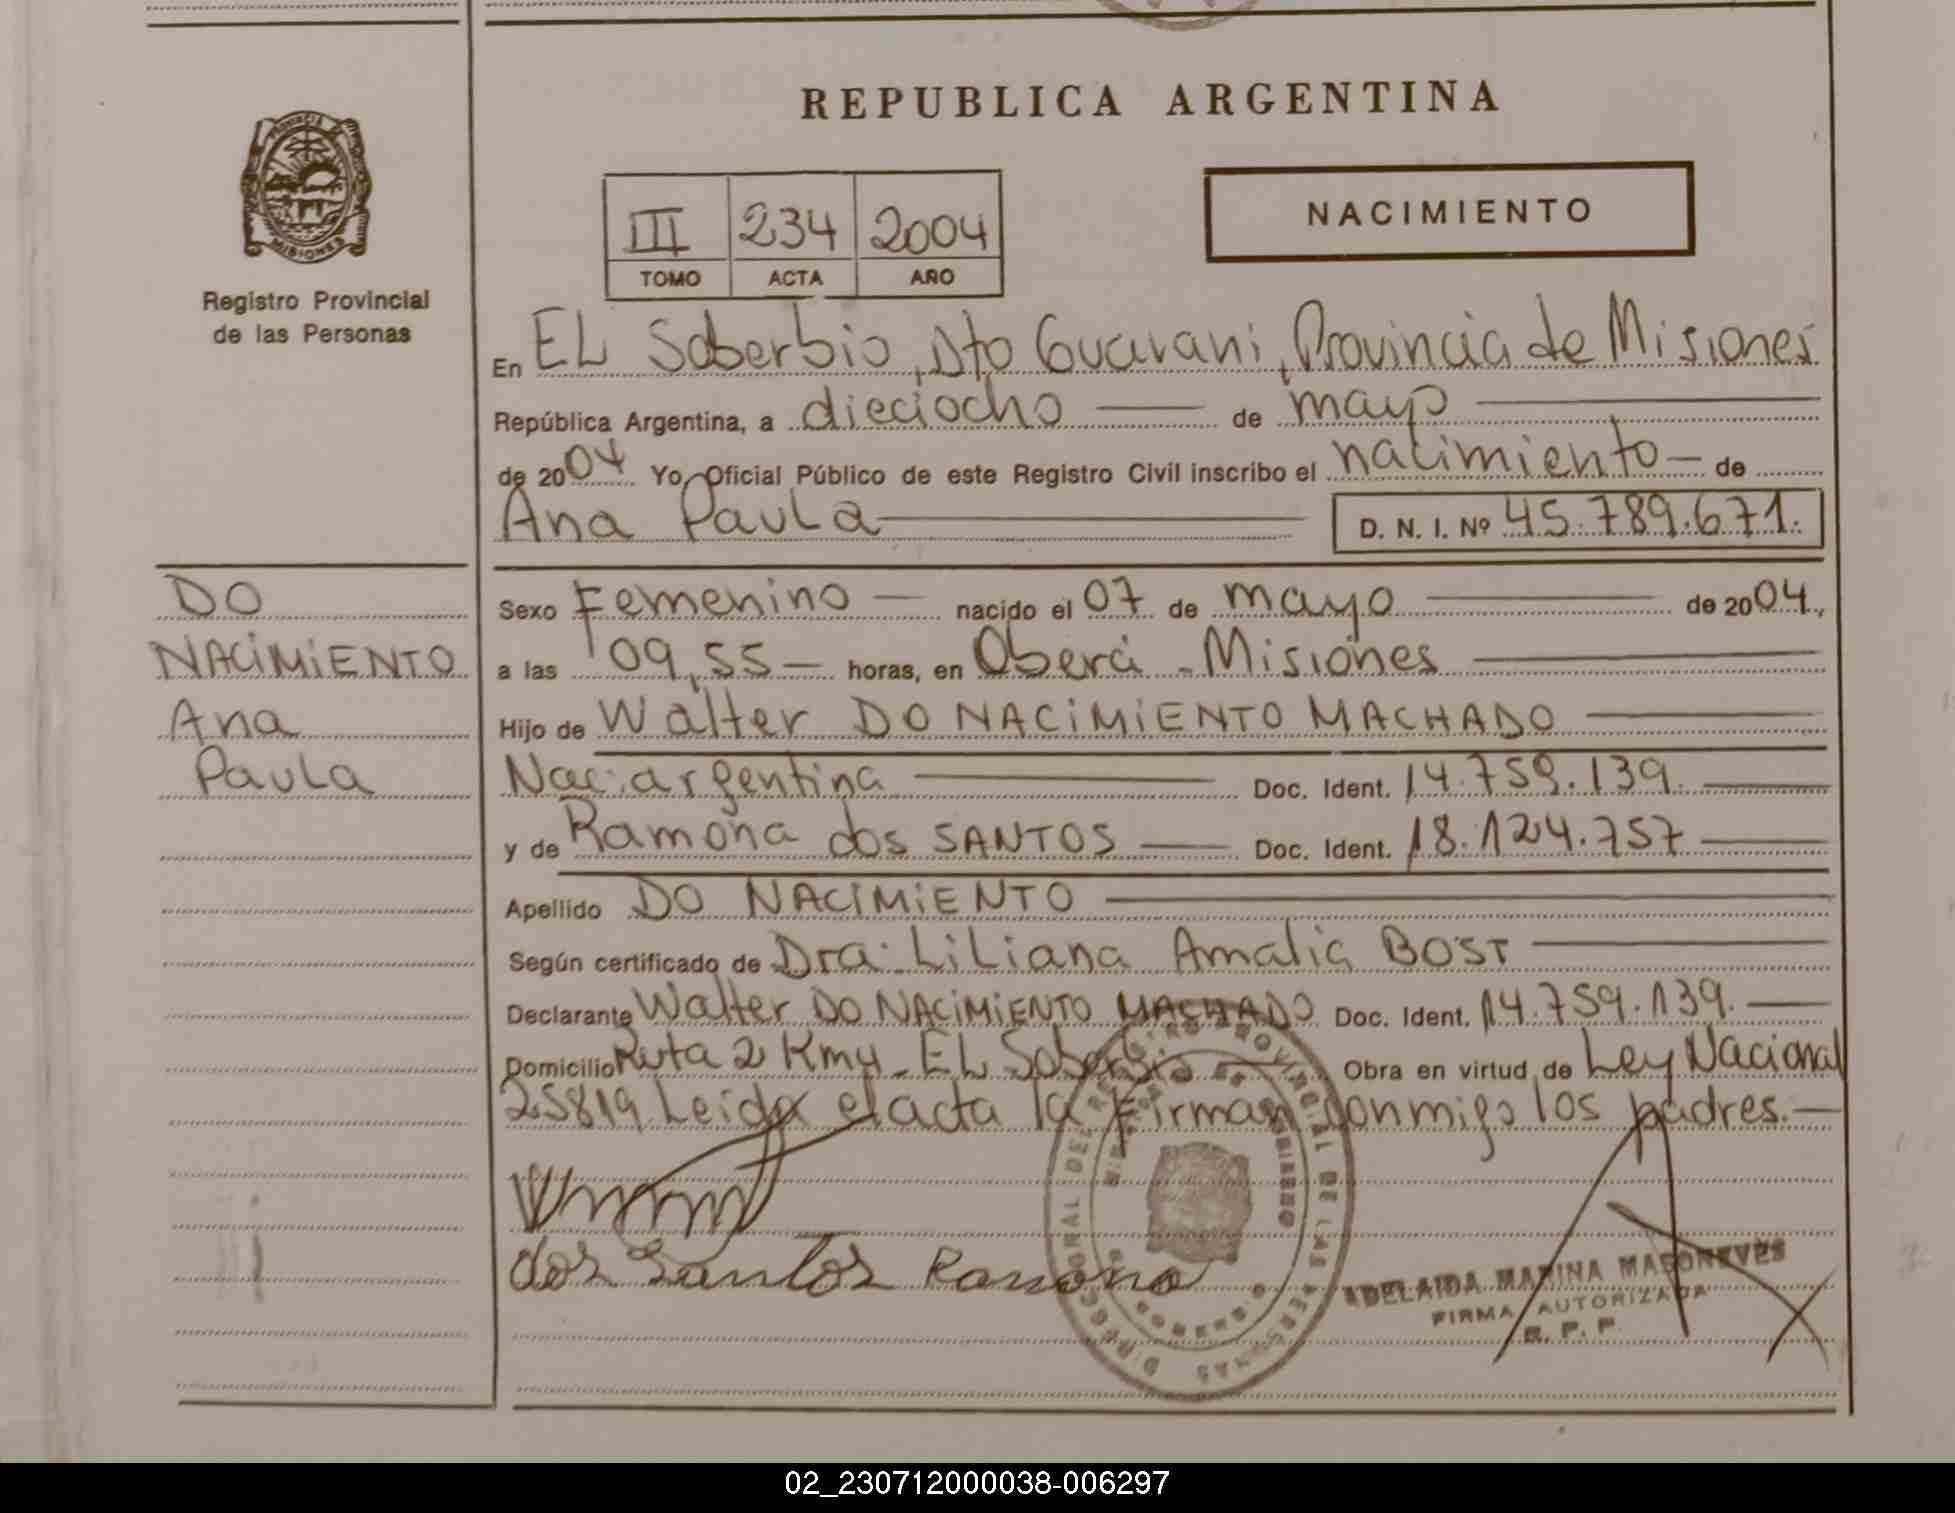 REPUBLICA ARGENTINA
PROVINCIA
MISIONES
Registro Provincial
de las Personas
III 234 2004
TOMO ACTA AÑO
NACIMIENTO
En EL Soberbio, Dto Guarani, Provincia de Misiones
República Argentina, a dieciocho de mayo
de 2004 Yo Oficial Público de este Registro Civil inscribo el nacimiento de
Ana Paula D. N. I. Nº 45.789.671.
DO
NACIMIENTO
Ana
Paula
Sexo Femenino nacido el 07 de mayo de 2004,
a las 09,55 horas, en Oberá - Misiones
Hijo de Walter DO NACIMIENTO MACHADO
Nac. argentina Doc. Ident. 14.759.139.
y de Ramona dos SANTOS Doc. Ident. 18.124.757
Apellido DO NACIMIENTO
Según certificado de Dra. Liliana Amalia BOST
Declarante Walter DO NACIMIENTO MACHADO Doc. Ident. 14.759.139.
Domicilio Ruta 2 Km4 - EL Soberbio Obra en virtud de Ley Nacional
25819. Leida el acta la Firman conmigo los padres.
dos Santos Ramona
DIRECCION GENERAL DEL REGISTRO PROVINCIAL DE LAS PERSONAS
ADELAIDA MARINA MASONEVES
FIRMA AUTORIZADA
R. P. P.
02_230712000038-006297